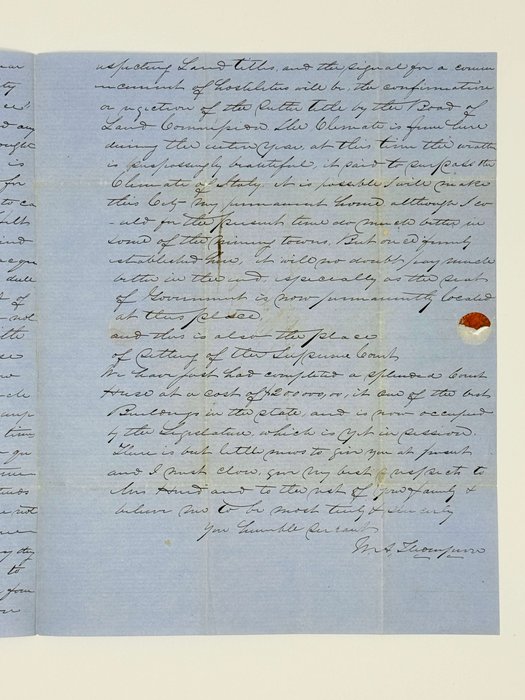 respecting Land titles, and the signal for a comm
encement of hostilities will be, the confirmation
or rejection of the Sutter title by the Board of
Land Commission The Climate is fine here
during the entire year, at this time the weather
is surpassingly beautiful, it said to surpass the
Climate of Italy, it is possible I will make
this City my permanent home although I co
uld for the present time do much better in
some of the mining towns, But once firmly
established here, it will no doubt pay much
better in the end, especially as the seat
of Government is now permanently located
at this place
and this is also the place
of setting of the Supreme Court
We have just had completed a splendid Court
House at a cost of $200,000,00, it one of the best
Buildings in the state, and is now occupied
by the Legislature, which is yet in session.
There is but little news to give you at present
and I must close, give my best respects to
Mrs Hurd and to the rest of your family &
believe me to be most truly & sincerely
your humble servant
M S Thompson